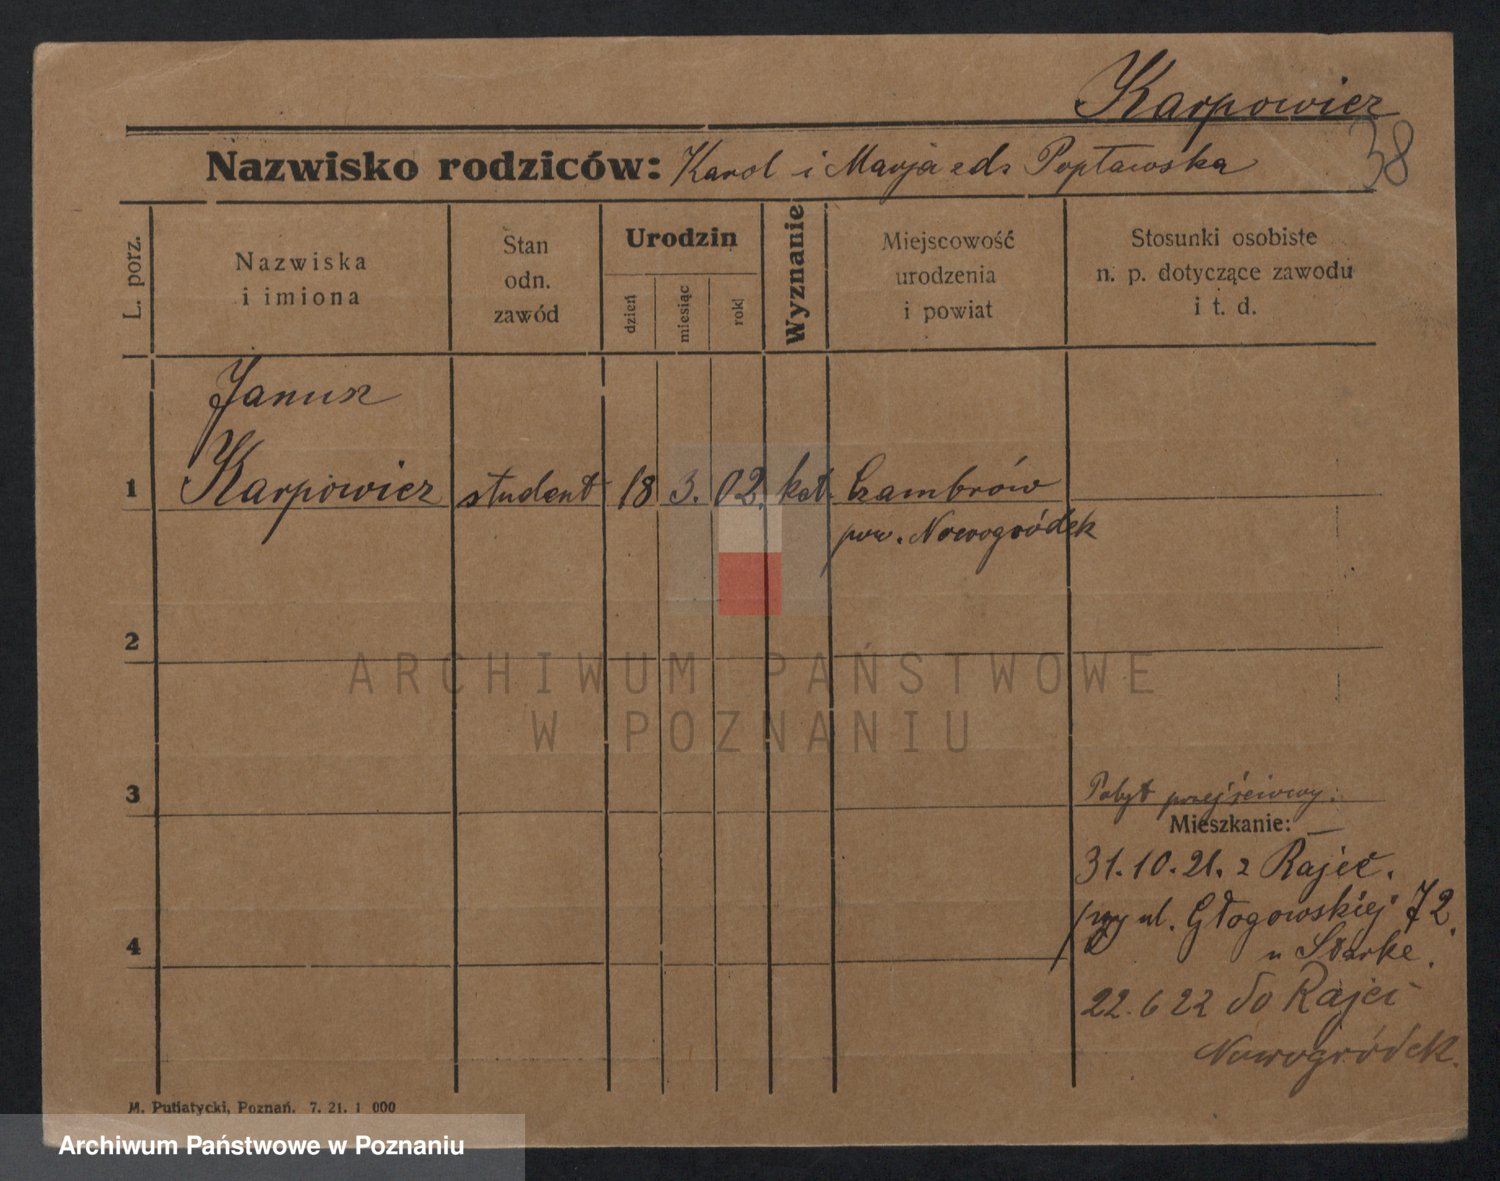 Karpowicz
38
Nazwisko rodziców: Karol i Marja z d. Popławska
L. porz.
Nazwiska
i imiona
Stan
odn.
zawód
Urodzin
dzień
miesiąc
rok
Wyznanie
Miejscowość
urodzenia
i powiat
Stosunki osobiste
n. p. dotyczące zawodu
i t. d.
Janusz
1 Karpowicz student 18 3. 02. kat. Czambrów
pow. Nowogródek
2
ARCHIWUM PAŃSTWOWE
W POZNANIU
3
Pobyt przejściowy.
Mieszkanie: —
31.10.21. z Rajec.
przy ul. Głogowskiej 72.
4
u Starke.
22.6 22 do Rajec
Nowogródek.
M. Putiatycki, Poznań. 7. 21. 1 000
Archiwum Państwowe w Poznaniu